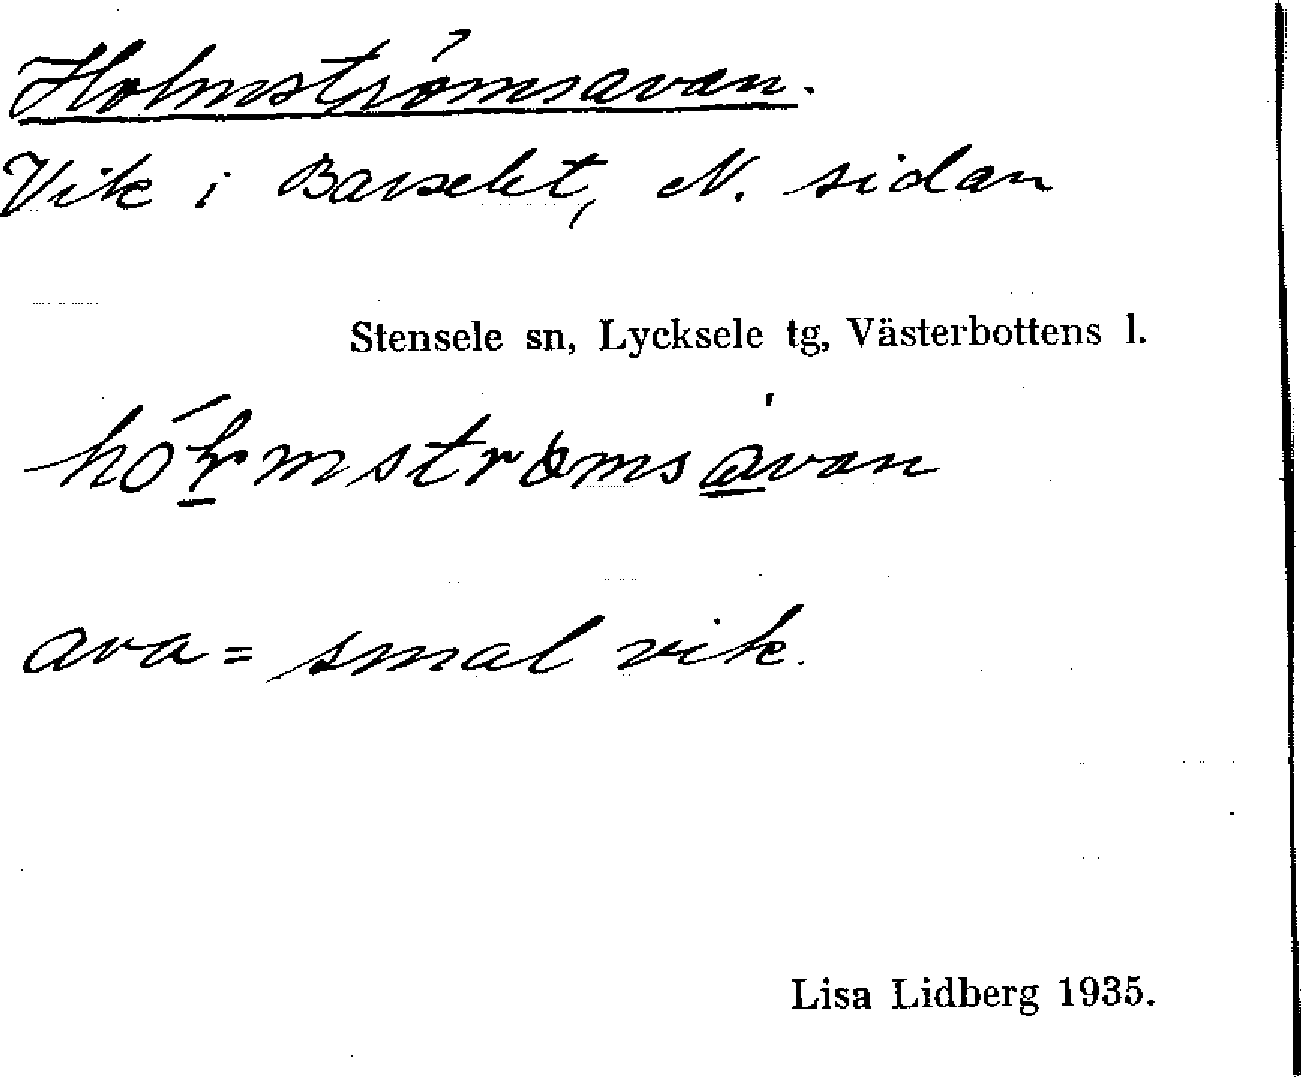 Holmströmsavan.
Vik i Barselet, N. sidan
Stensele sn, Lycksele tg, Västerbottens l.
ava = smal vik.
Lisa Lidberg 1935.